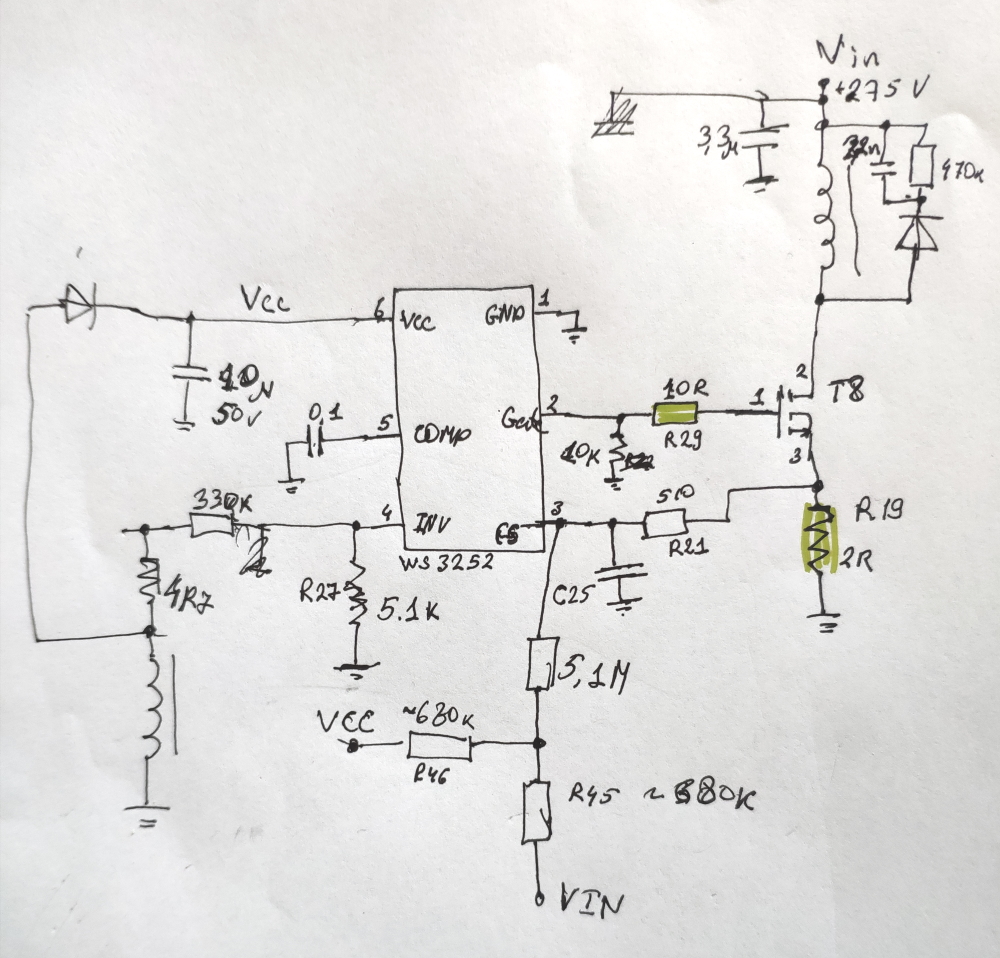 Vin
+275 V
3,3µ
22n
470k
Vcc
6
VCC
GND
1
10µ
50V
0,1
5
COMP
2
10R
R29
1
2
T8
3
10K
330K
4
INV
3
CS
510
R21
R19
2R
WS 3252
C25
4R7
R27
5.1K
5,1M
VCC
~680K
R46
R45 ~680K
VIN